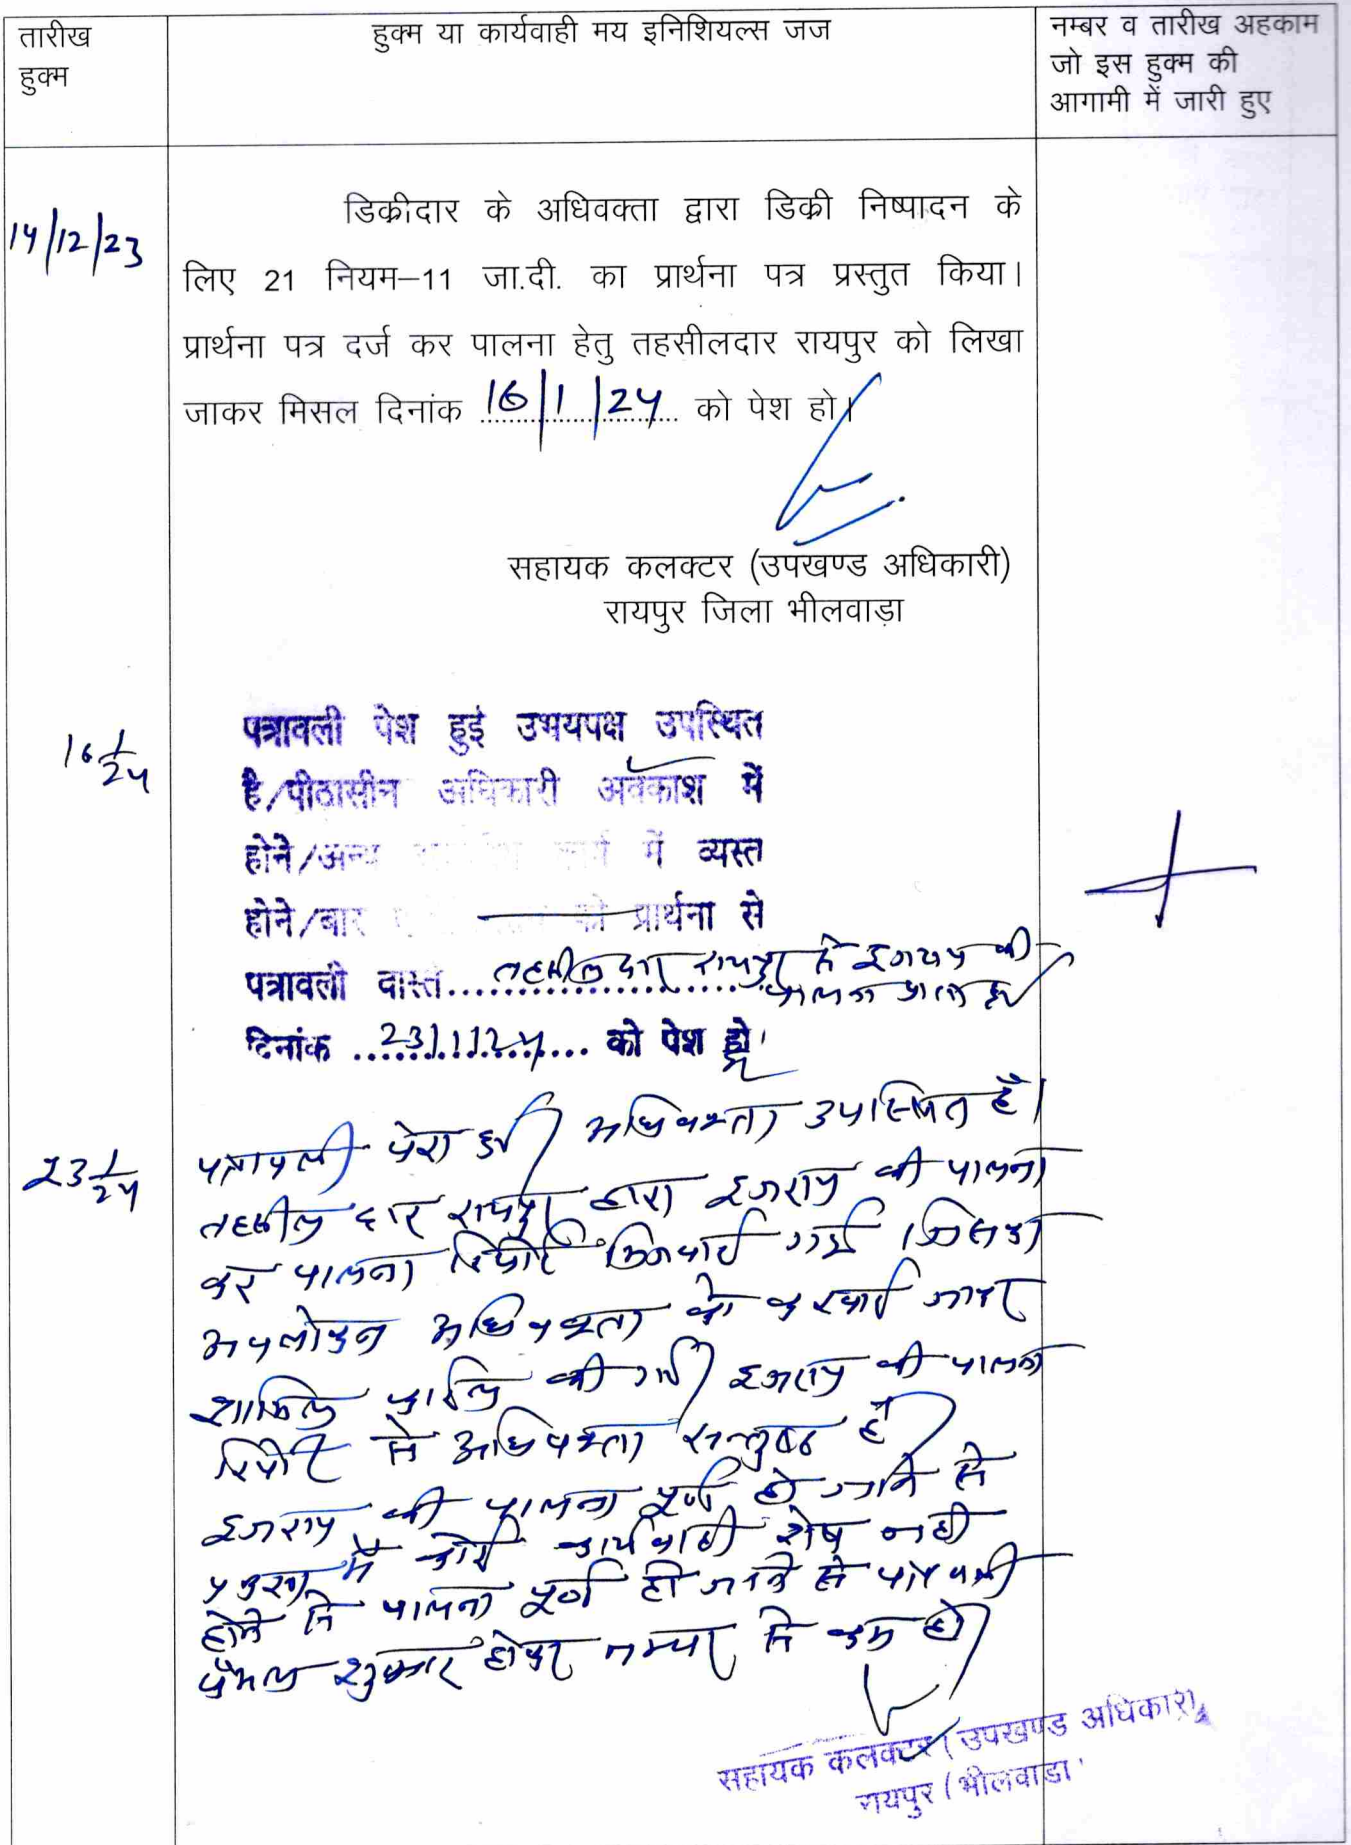 तारीख
हुक्म
हुक्म या कार्यवाही मय इनिशियल्स जज
नम्बर व तारीख अहकाम
जो इस हुक्म की
आगामी में जारी हुए
14/12/23
डिकीदार के अधिवक्ता द्वारा डिकी निष्पादन के
लिए 21 नियम–11 जा.दी. का प्रार्थना पत्र प्रस्तुत किया।
प्रार्थना पत्र दर्ज कर पालना हेतु तहसीलदार रायपुर को लिखा
जाकर मिसल दिनांक 16/1/24 को पेश हो।
सहायक कलक्टर (उपखण्ड अधिकारी)
रायपुर जिला भीलवाड़ा
16 1/24
पत्रावली पेश हुई उभयपक्ष उपस्थित
है/पीठासीन अधिकारी अवकाश में
होने/अन्य कार्य में व्यस्त
होने/बार की प्रार्थना से
पत्रावली वास्ते तहसीलदार रायपुर से इजराय की
पालना प्राप्त हुई
दिनांक 23/1/24 को पेश हो।
23 1/24
पत्रावली पेश हुई। अधिवक्ता उपस्थित है।
तहसीलदार रायपुर द्वारा इजराय की पालना
कर पालना रिपोर्ट भिजवाई गई जिसका
अवलोकन अधिवक्ता को करवाई जाकर
शामिल फाईल की गई। इजराय की पालना
रिपोर्ट से अधिवक्ता सन्तुष्ट है।
इजराय की पालना पूर्ण हो जाने से
प्रकरण में कोई कार्यवाही शेष नही
होने से पालना पूर्ण हो जाने से पत्रावली
फैसल शुमार होकर नम्बर से कम हो।
सहायक कलक्टर (उपखण्ड अधिकारी)
रायपुर (भीलवाडा)